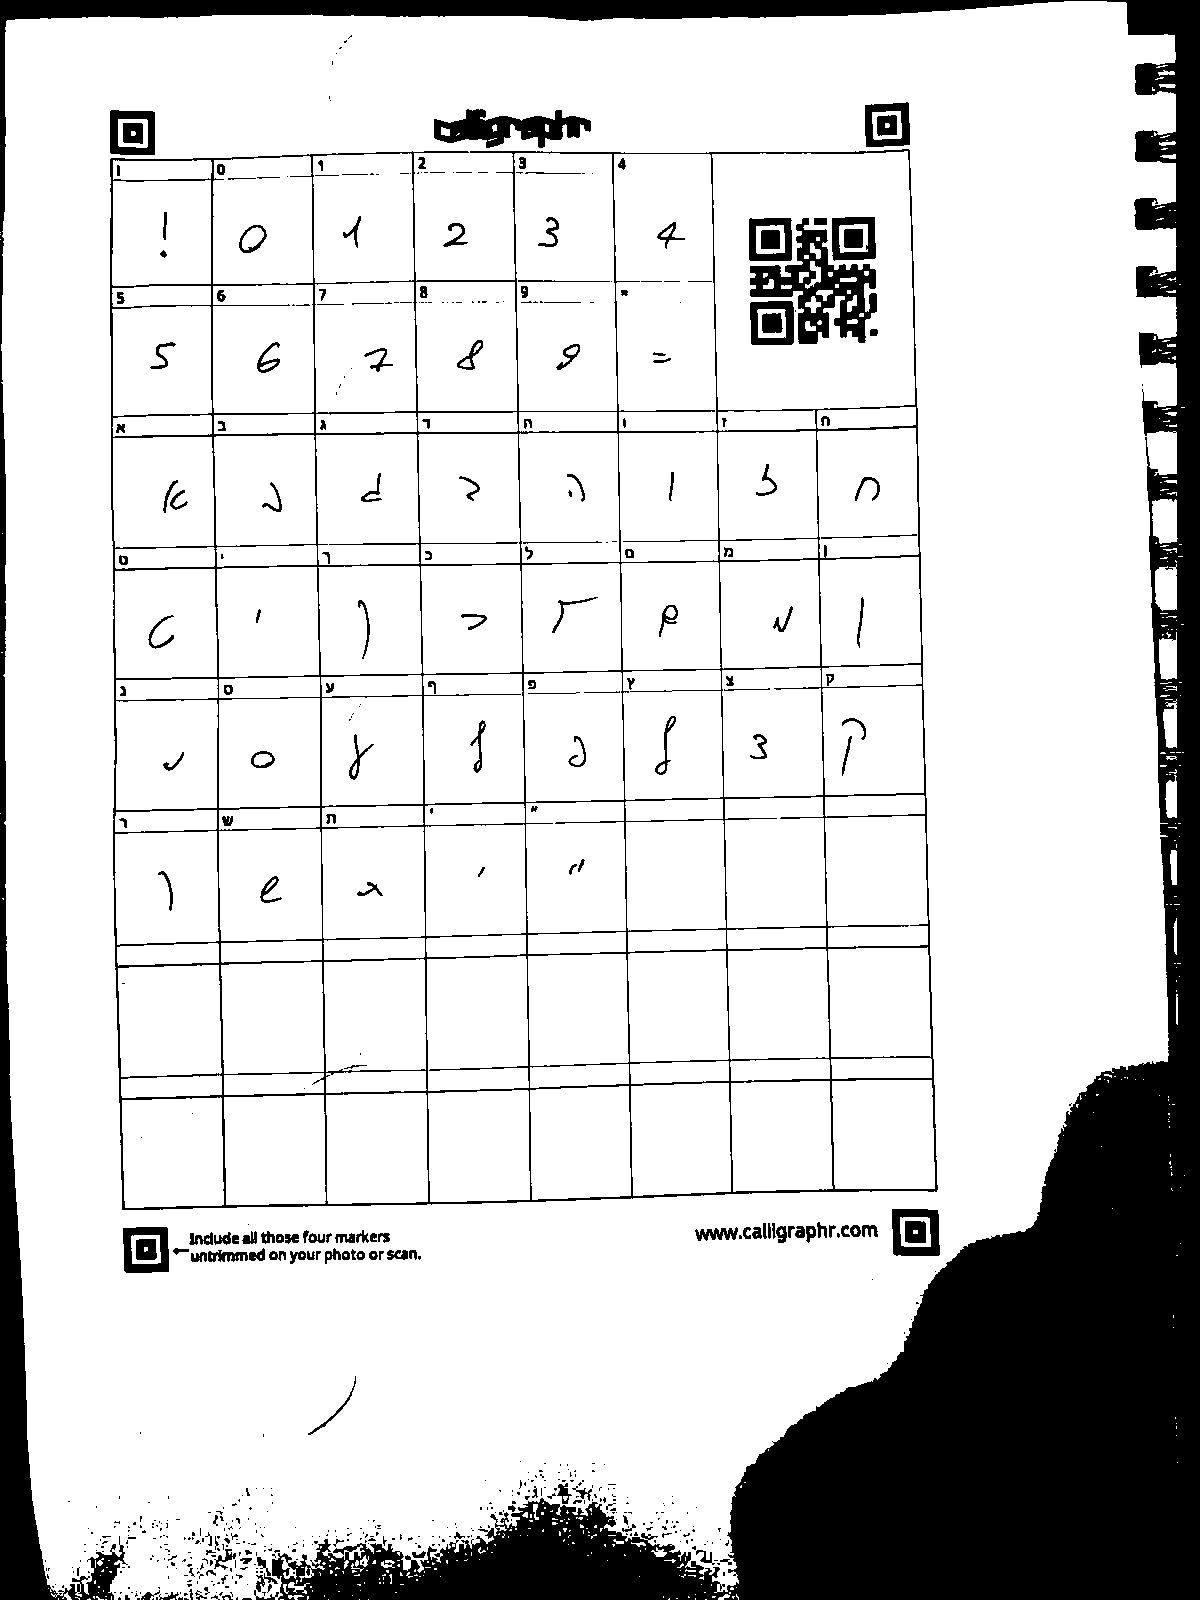 calligraphr
! 0 1 2 3 4
! 0 1 2 3 4
5 6 7 8 9 =
5 6 7 8 9 =
א ב ג ד ה ו ז ח
א ב ג ד ה ו ז ח
ט י ך כ ל ם מ ן
ט י ך כ ל ם מ ן
נ ס ע ף פ ץ צ ק
נ ס ע ף פ ץ צ ק
ר ש ת ' "
ר ש ת ' "
Include all those four markers
untrimmed on your photo or scan.
www.calligraphr.com